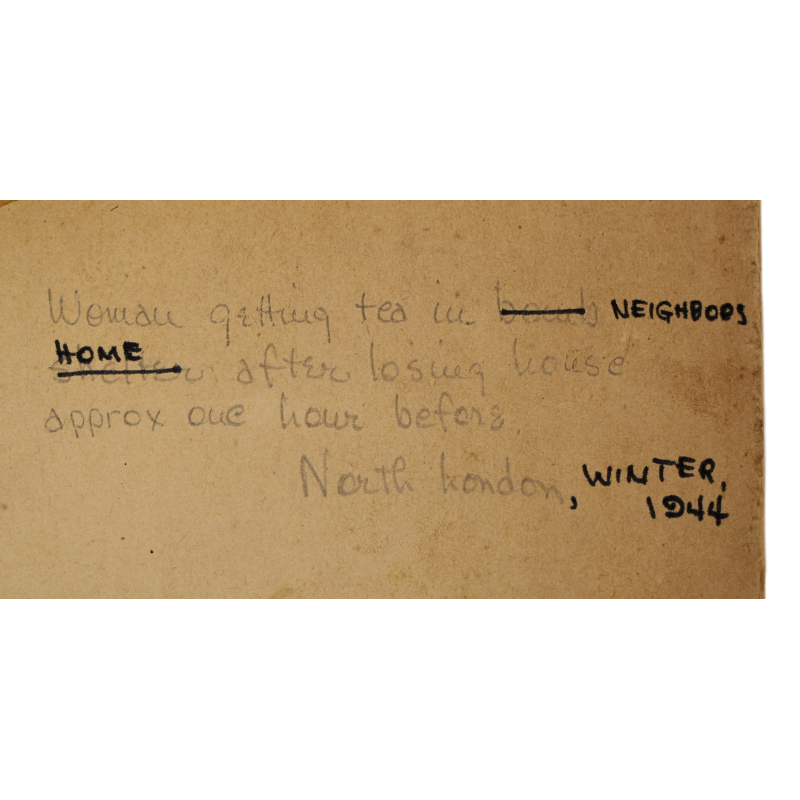 Woman getting tea in bomb NEIGHBORS
HOME
shelter after losing house
approx one hour before.
North London, WINTER,
1944